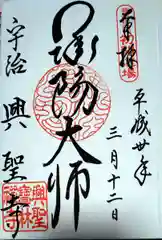 奉拝
平成丗年
三月十二日
承陽大師
宇治 興聖寺
興聖
寶林
禅寺